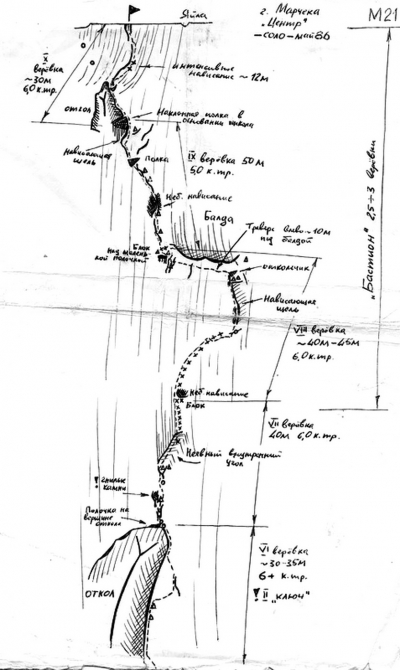 Яйла
г. Марчека
„Центр"
– соло – май 86
М21
X
верёвка
~30м
6,0 к.тр.
интенсивное
нависание ~ 12м
откол
Наклонная полка в
основании откола
Нависающая
щель
полка
IX верёвка 50м
5,0 к.тр.
Неб. нависание
Балда
Траверс влево ~10м
под балдой
Блок
над малень-
кой полочкой
откольчик
Нависающая
щель
„Бастион" 2,5÷3 верёвки
VIII верёвка
~40м – 45м
6,0 к.тр.
Неб. нависание
Блок
VII верёвка
40м 6,0 к.тр.
Неявный внутренний
угол
! гнилые
камни
Полочка на
вершине
откола
VI верёвка
~30-35м
6+ к.тр.
! II „ключ"
откол